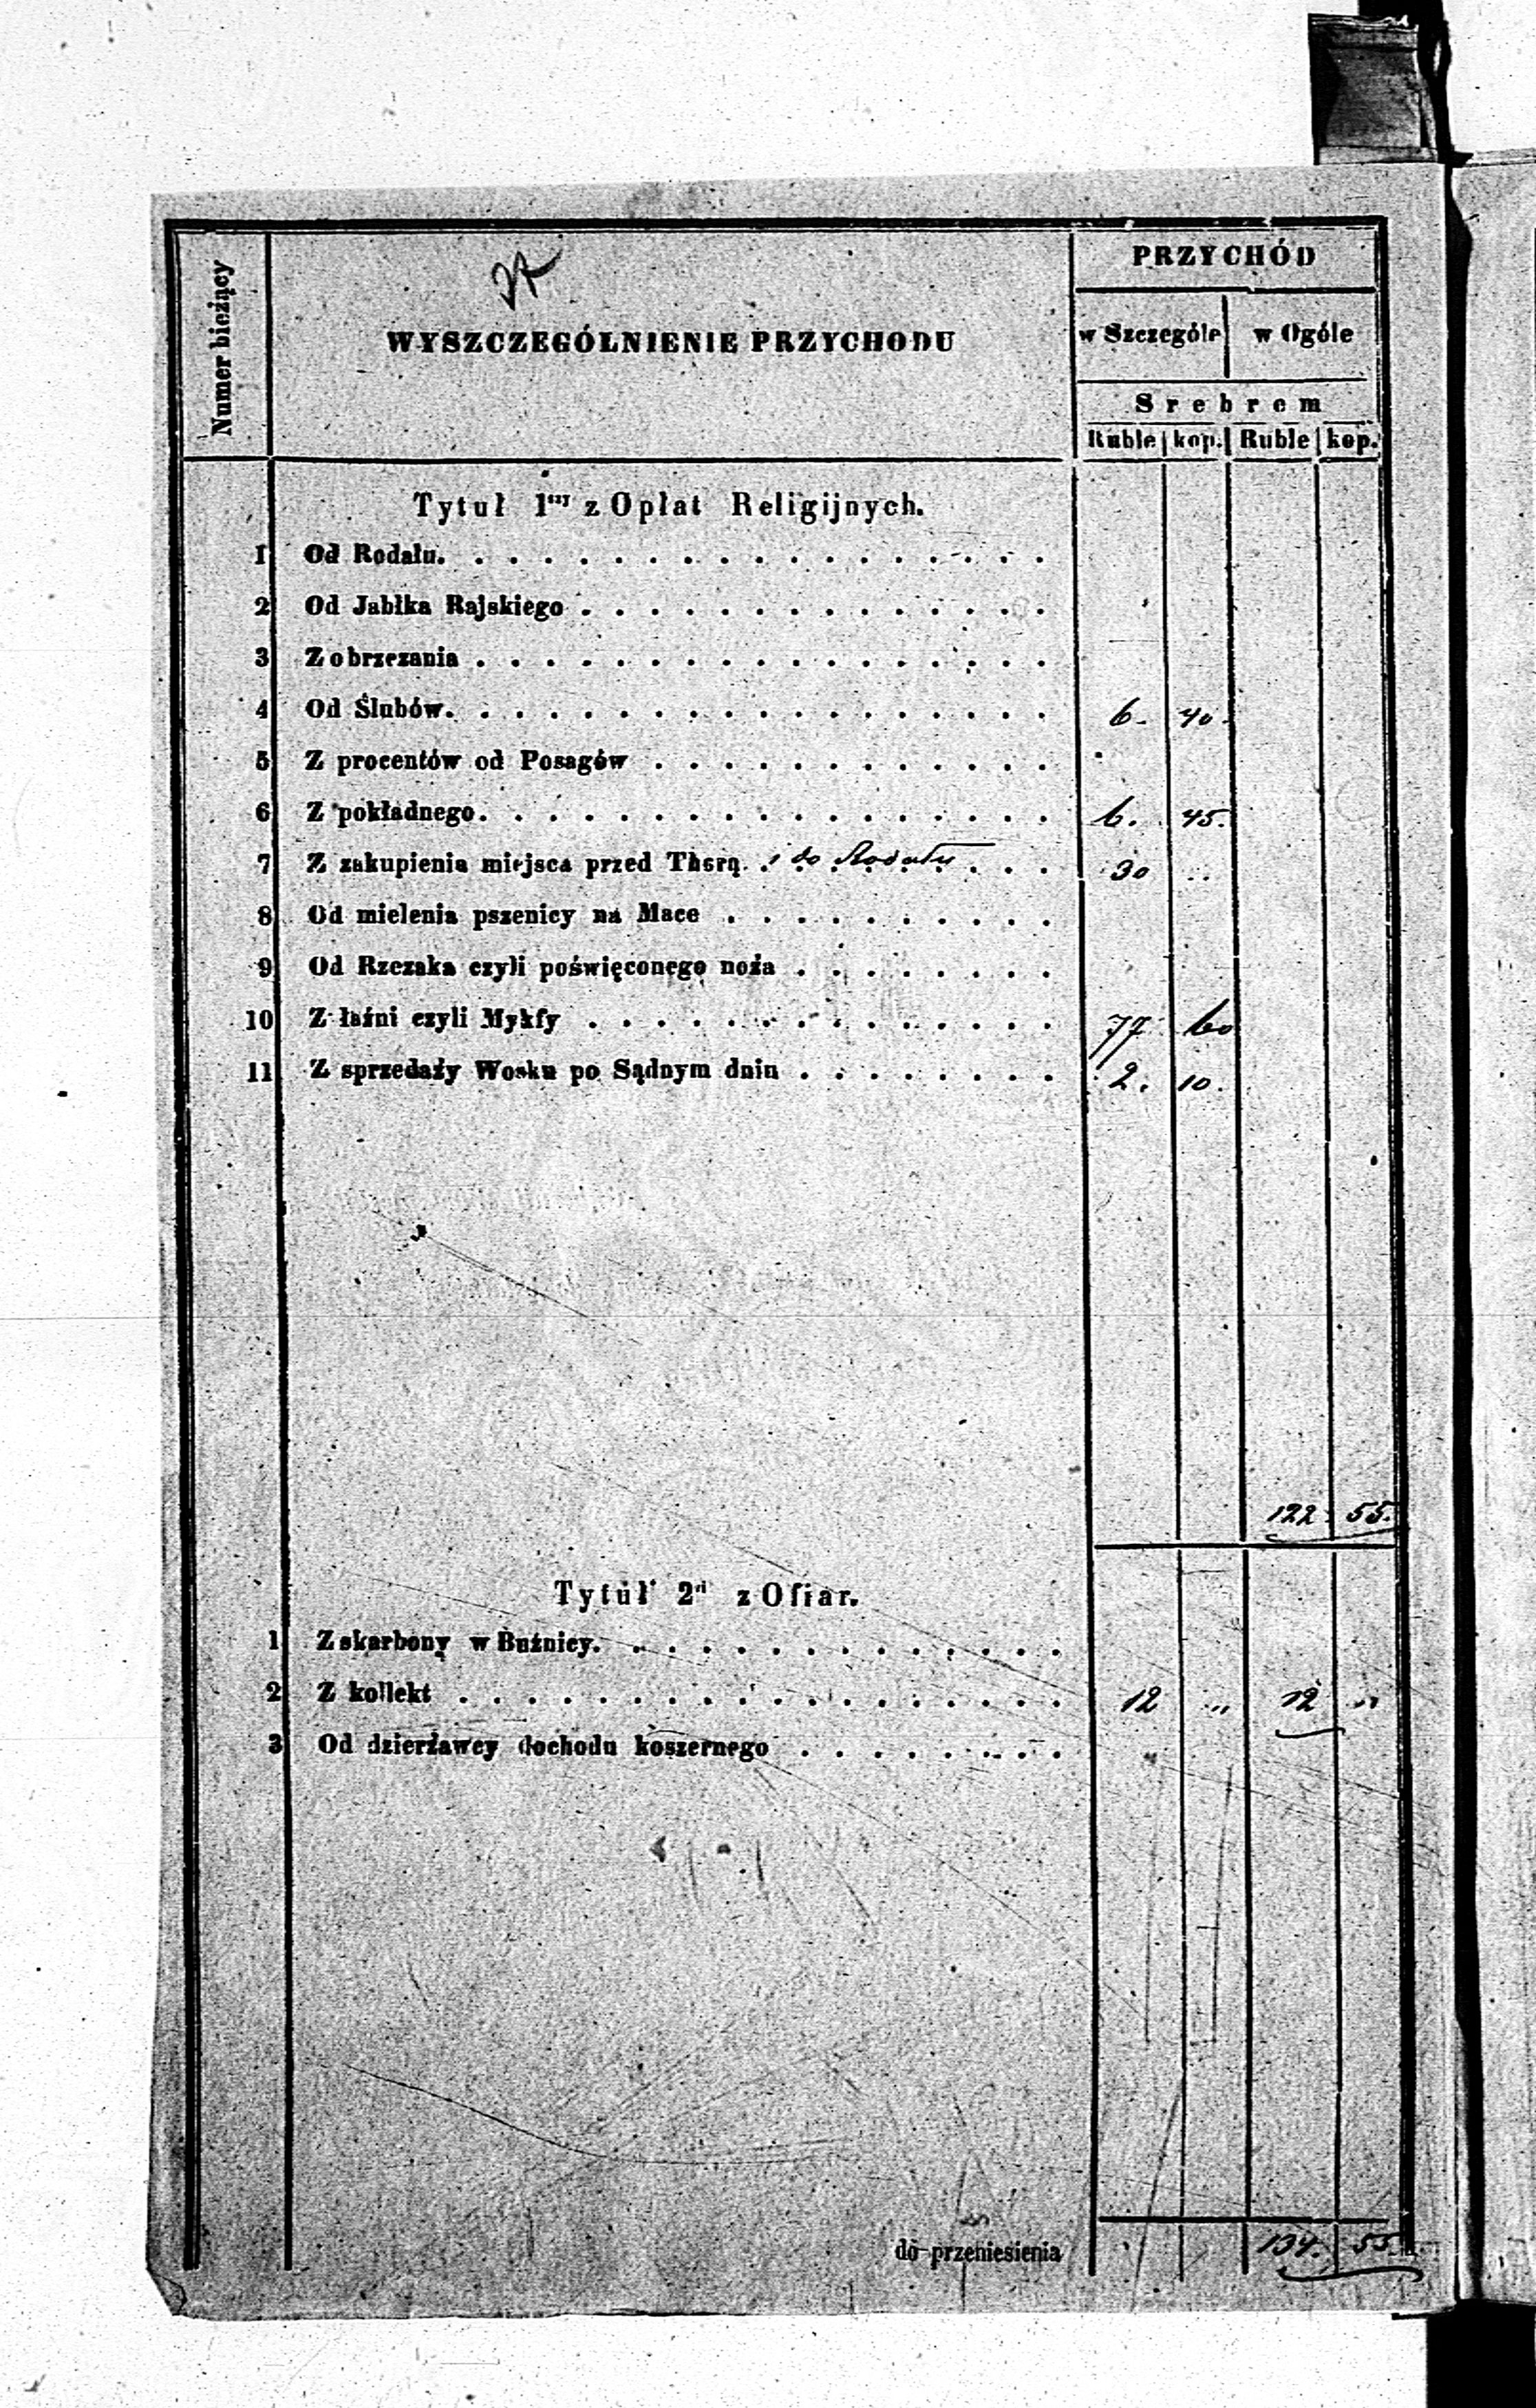 Numer bieżący
WYSZCZEGÓLNIENIE PRZYCHODU
PRZYCHÓD
w Szczególe w Ogóle
Srebrem
Ruble kop. Ruble kop.
Tytuł 1szy z Opłat Religijnych.
1 Od Rodału.
2 Od Jabłka Rajskiego
3 Z obrzezania
4 Od Ślubów. 6. 40.
5 Z procentów od Posagów
6 Z pokładnego. 6. 45.
7 Z zakupienia miejsca przed Thorą i do Rodału 30 ..
8 Od mielenia pszenicy na Mace
9 Od Rzezaka czyli poświęconego noża
10 Z łaźni czyli Mykfy 77 60
11 Z sprzedaży Wosku po Sądnym dniu 2. 10.
122 55.
Tytuł 2gi z Ofiar.
1 Z skarbony w Buźnicy.
2 Z kollekt 12 „ 12 „
3 Od dzierżawcy dochodu koszernego
do przeniesienia 134. 55.